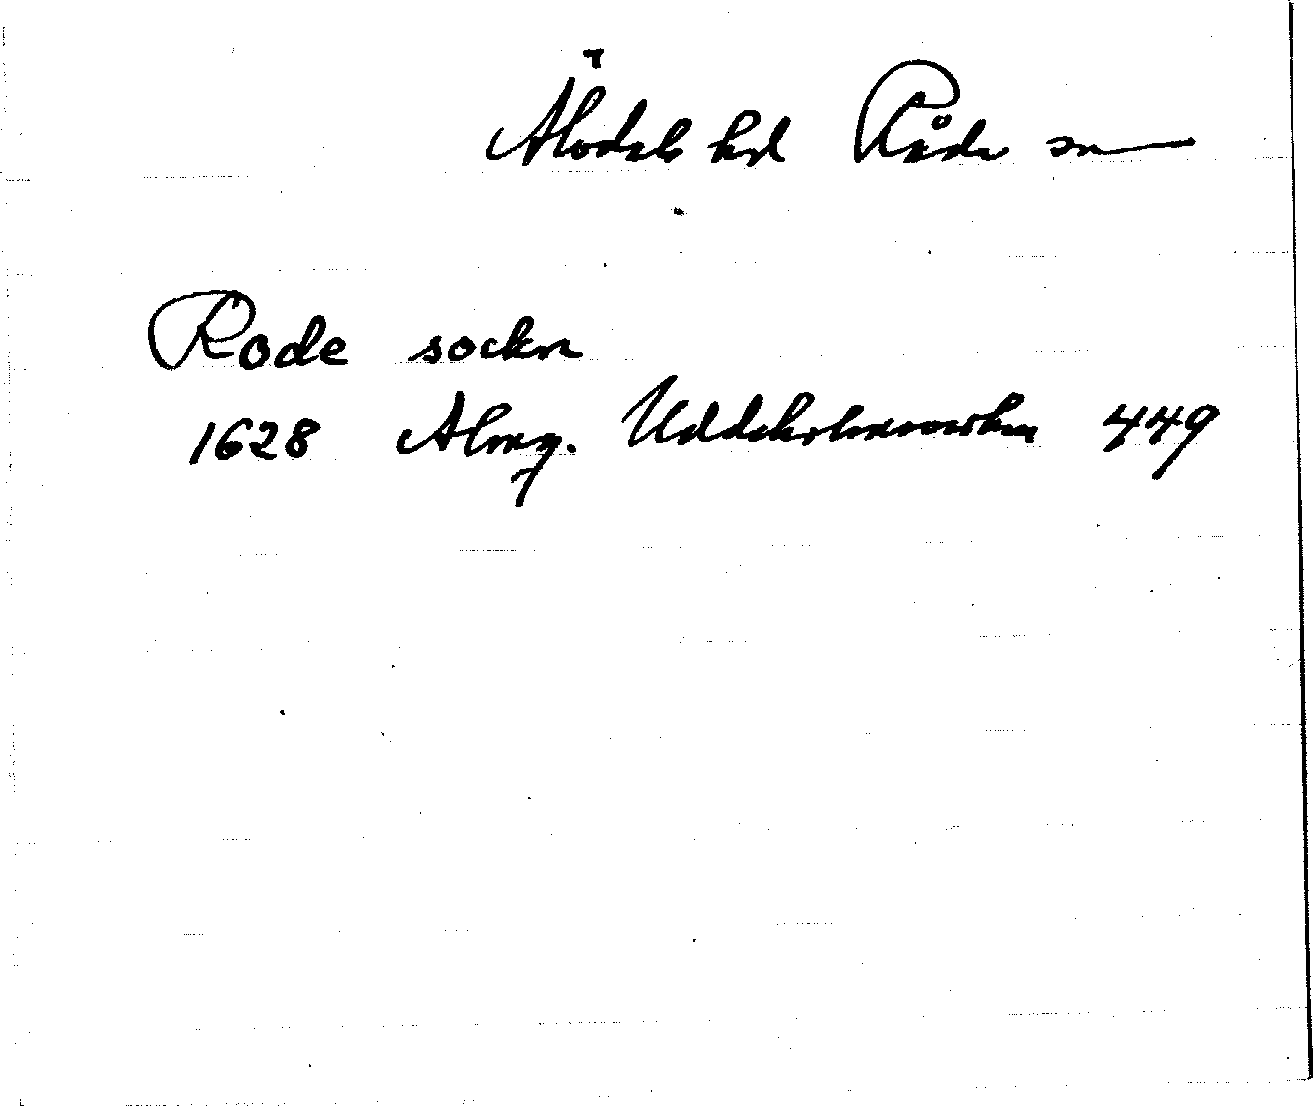 Älvdals hd Råda sn
Rode sockn
1628 Almq. Uddeholmsverken 449